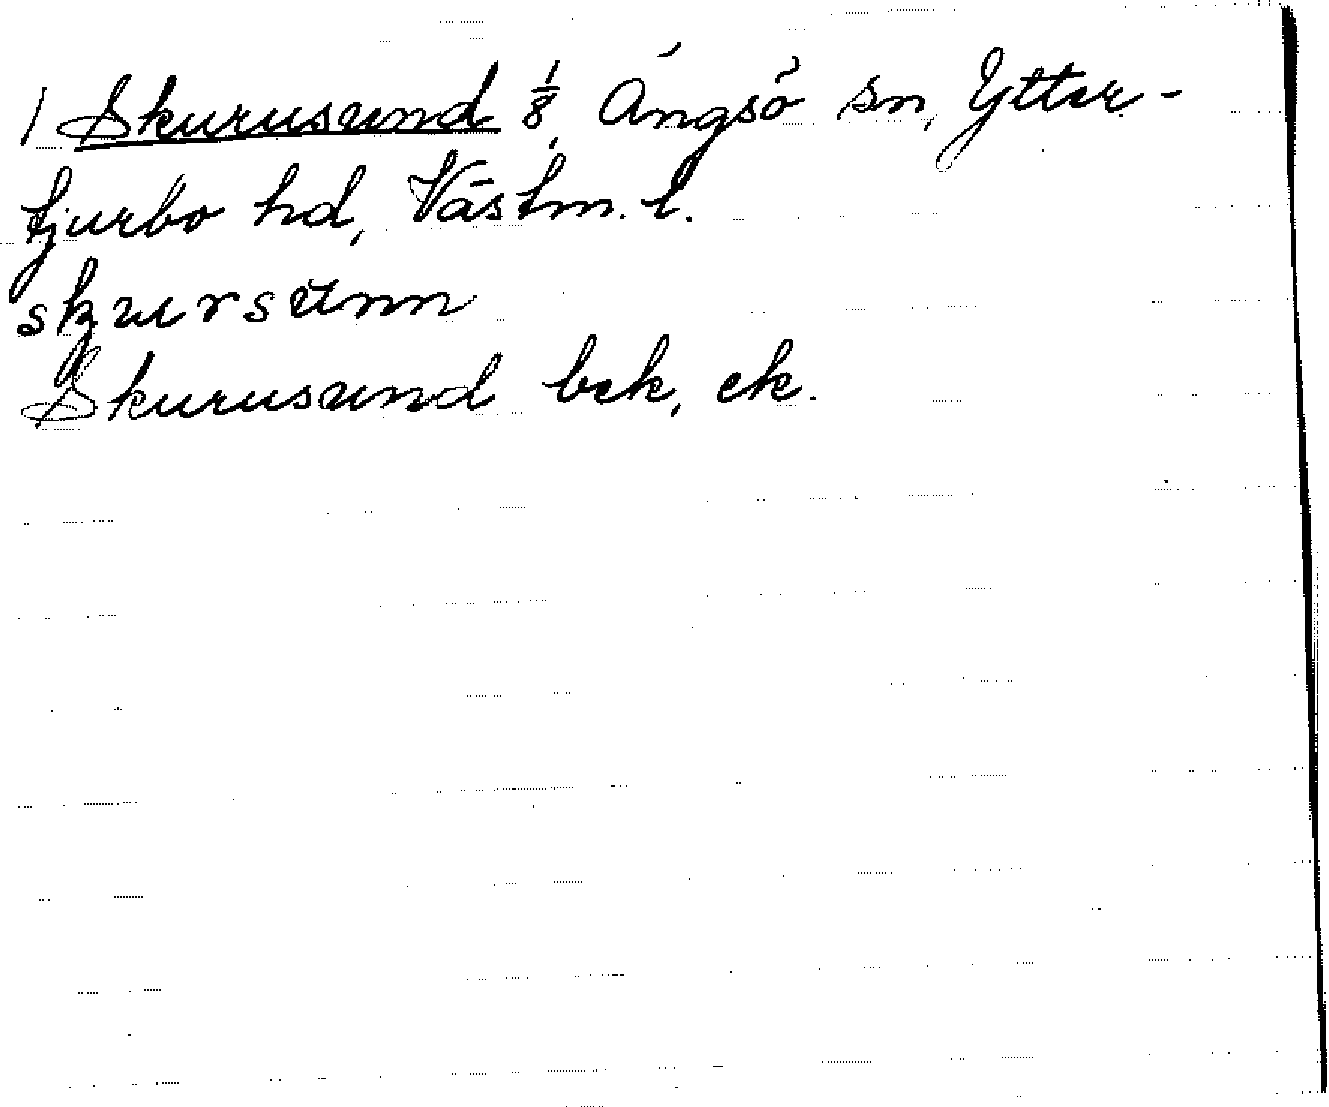 1 Skurusund 1/8, Ängsö sn, Ytter-
tjurbo hd, Västm. l.
skursünn
Skurusund bek, ek.